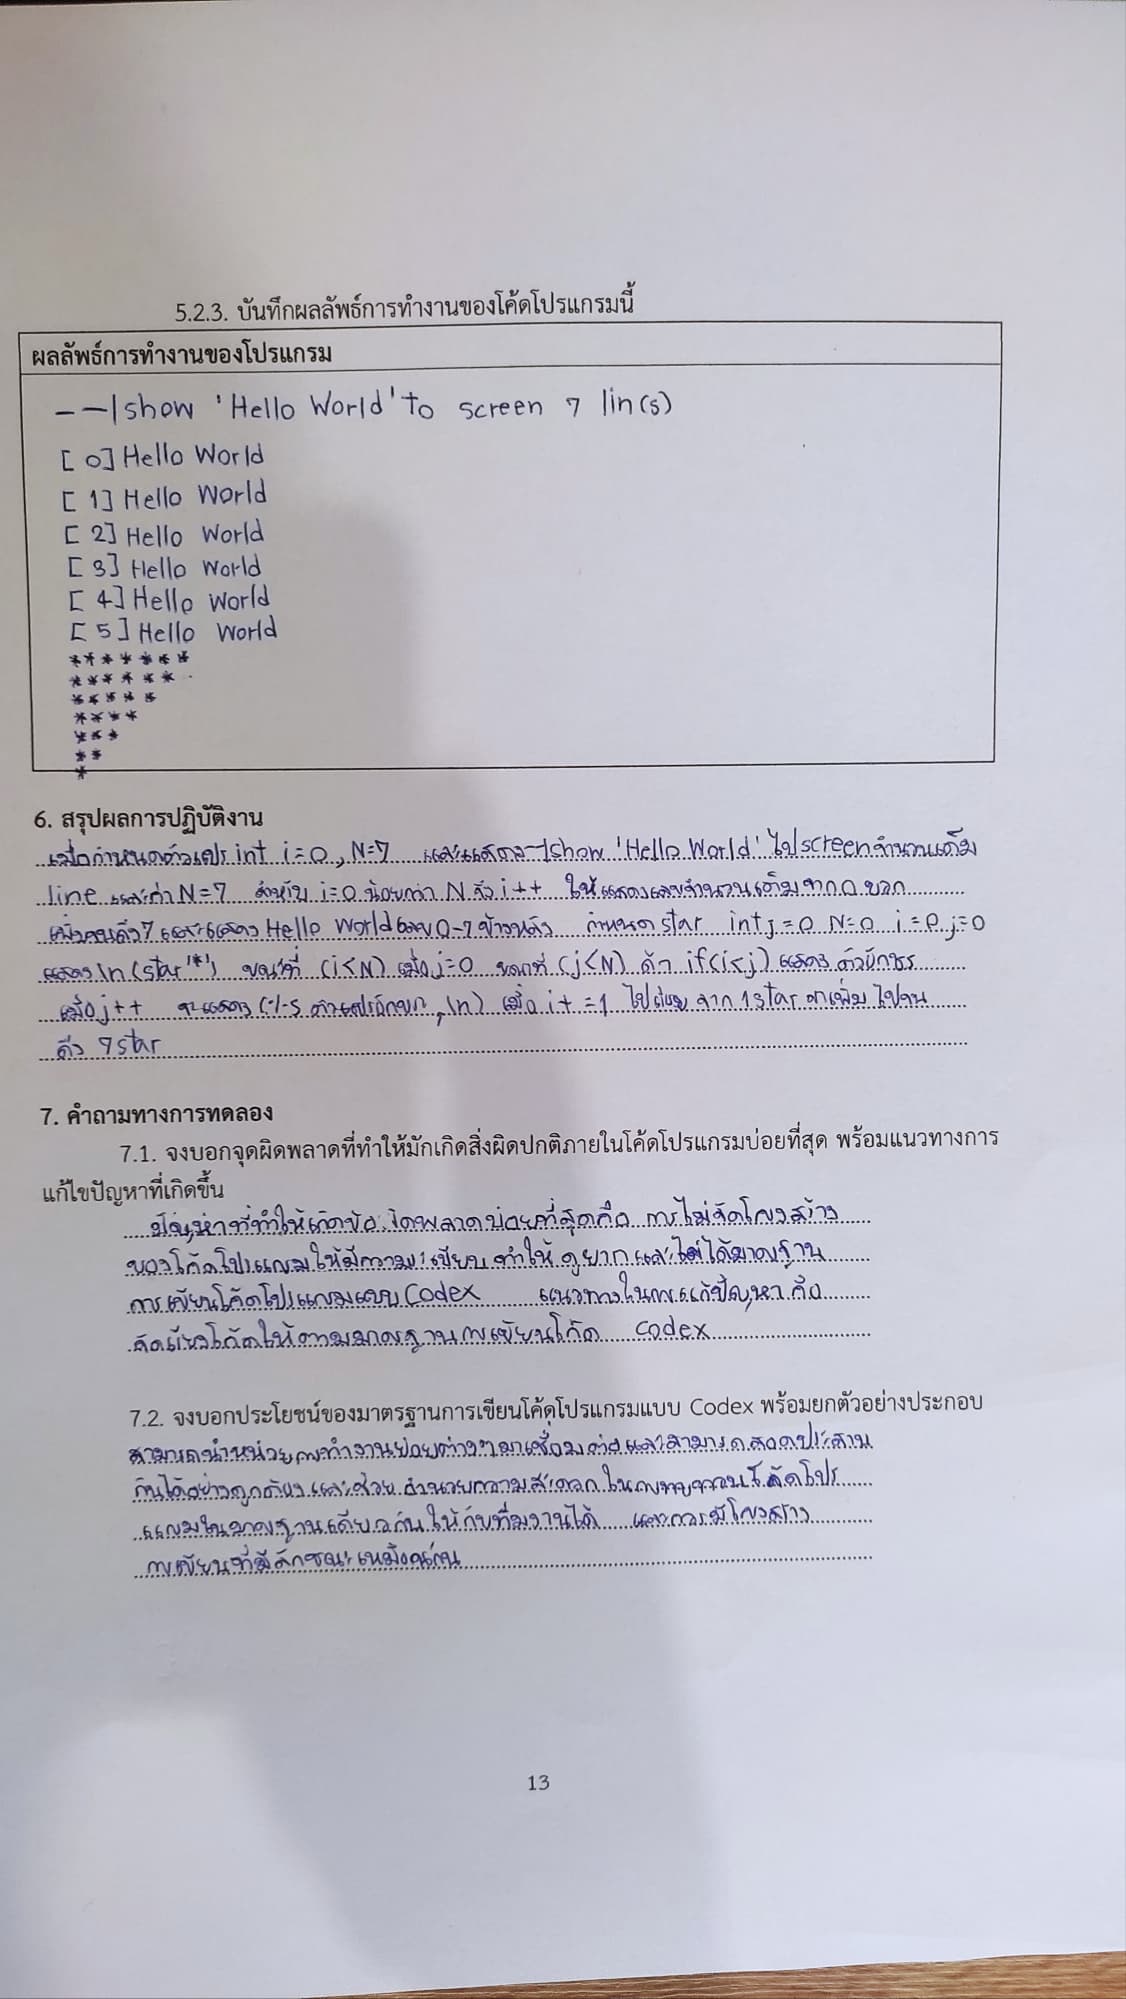 5.2.3. บันทึกผลลัพธ์การทำงานของโค้ดโปรแกรมนี้
ผลลัพธ์การทำงานของโปรแกรม
--|show 'Hello World' to screen 7 lin(s)
[ 0] Hello World
[ 1] Hello World
[ 2] Hello World
[ 3] Hello World
[ 4] Hello World
[ 5] Hello World
*******
******
*****
****
***
**
*
6. สรุปผลการปฏิบัติงาน
เมื่อกำหนดตัวแปร int i=0, N=7 และแสดง -|show 'Hello World' ไป screen จำนวนเต็ม
line และค่า N=7 สำหรับ i=0 น้อยกว่า N ถึง i++ ให้แสดงเลขจำนวนเต็มจาก 0 บวก
เพิ่มจนถึง 7 และแสดง Hello World เลข 0-7 ข้างหลัง กำหนด star int j=0 N=0 i=0 j=0
แสดง \n(star'*') ขณะที่ (i<N) เมื่อ j=0 ขณะที่ (j<N) ถ้า if(i<j) แสดง ตัวอักษร
เมื่อ j++ จะแสดง (%s ตัวแปรอักขระ, \n) เมื่อ i+=1 ไปเรื่อย จาก 1 star จะเพิ่มไปจน
ถึง 7 star
7. คำถามทางการทดลอง
7.1. จงบอกจุดผิดพลาดที่ทำให้มักเกิดสิ่งผิดปกติภายในโค้ดโปรแกรมบ่อยที่สุด พร้อมแนวทางการ
แก้ไขปัญหาที่เกิดขึ้น
ปัญหาที่ทำให้เกิดข้อผิดพลาดบ่อยที่สุดคือ การไม่จัดโครงสร้าง
ของโค้ดโปรแกรมให้มีความระเบียบ ทำให้ดูยากและไม่ได้มาตรฐาน
การเขียนโค้ดโปรแกรมแบบ Codex แนวทางในการแก้ปัญหา คือ
จัดเรียงโค้ดให้ตามมาตรฐานการเขียนโค้ด codex
7.2. จงบอกประโยชน์ของมาตรฐานการเขียนโค้ดโปรแกรมแบบ Codex พร้อมยกตัวอย่างประกอบ
สามารถนำหน่วยการทำงานย่อยต่างๆ มาเชื่อมต่อและสามารถสอดประสาน
กันได้อย่างถูกต้อง และช่วยอำนวยความสะดวกในการทบทวนโค้ดโปร
แกรมในมาตรฐานเดียวกันให้กับทีมงานได้ และควรมีโครงสร้าง
การเขียนที่มีลักษณะเหมือนกัน
13